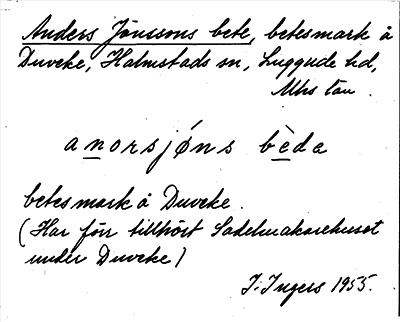 Anders Jönssons bete, betesmark å
Duveke, Halmstads sn, Luggude hd,
Mhs län.
anorsjøns bèda
betesmark å Duveke.
(Har förr tillhört Sadelmakarehuset
under Duveke)
I. Ingers 1955.